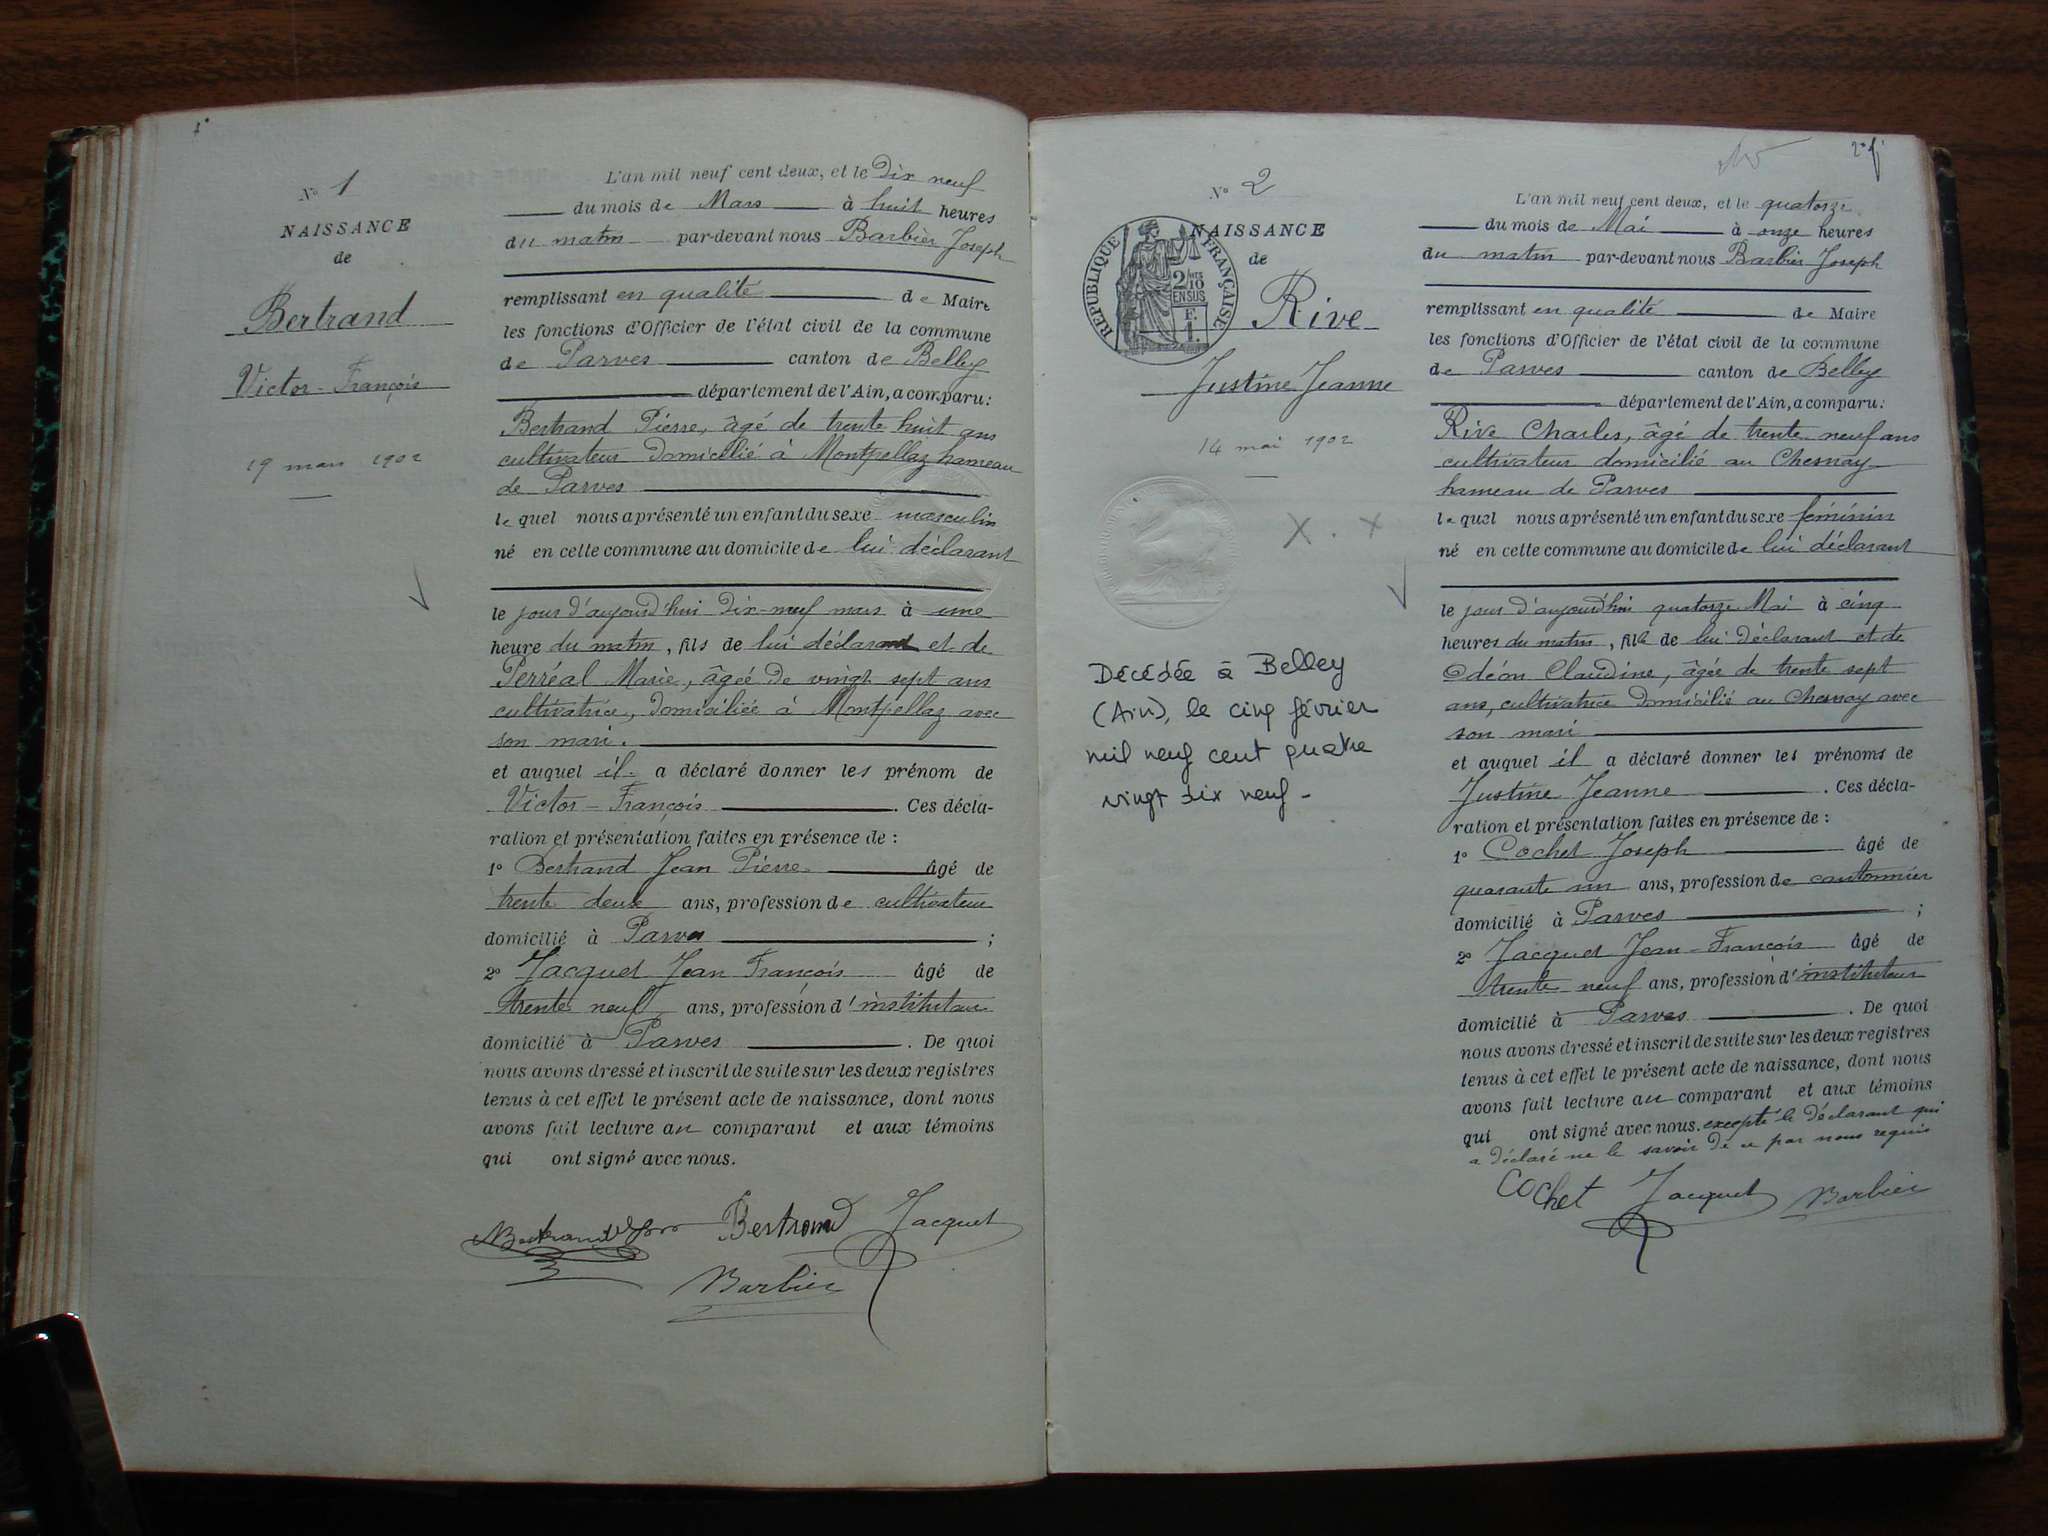 1°
N° 1
NAISSANCE
de
Bertrand
Victor-François
19 mars 1902
L'an mil neuf cent deux, et le Dix neuf
du mois de Mars à huit heures
du matin par-devant nous Barbier Joseph
remplissant en qualité de Maire
les fonctions d'Officier de l'état civil de la commune
de Parves canton de Belley
département de l'Ain, a comparu:
Bertrand Pierre, âgé de trente huit ans
cultivateur domicilié à Montpellaz hameau
de Parves
lequel nous a présenté un enfant du sexe masculin
né en cette commune au domicile de lui déclarant
le jour d'aujourd'hui dix-neuf mars à une
heure du matin, fils de lui déclarant et de
Perréal Marie, âgée de vingt sept ans
cultivatrice, domiciliée à Montpellaz avec
son mari.
et auquel il a déclaré donner les prénom de
Victor-François. Ces décla-
ration et présentation faites en présence de :
1° Bertrand Jean Pierre âgé de
trente deux ans, profession de cultivateur
domicilié à Parves ;
2° Jacquet Jean François âgé de
trente neuf ans, profession d'instituteur
domicilié à Parves. De quoi
nous avons dressé et inscrit de suite sur les deux registres
tenus à cet effet le présent acte de naissance, dont nous
avons fait lecture au comparant et aux témoins
qui ont signé avec nous.
Bertrand Bertrand Jacquet
Barbier
2°
N° 2
NAISSANCE
de
RÉPUBLIQUE FRANÇAISE
2/10
EN SUS
F.
1.
Rive
Justine Jeanne
14 mai 1902
X . X
Décédée à Belley
(Ain), le cinq février
mil neuf cent quatre
vingt dix neuf -
L'an mil neuf cent deux, et le quatorze
du mois de Mai à onze heures
du matin par-devant nous Barbier Joseph
remplissant en qualité de Maire
les fonctions d'Officier de l'état civil de la commune
de Parves canton de Belley
département de l'Ain, a comparu:
Rive Charles, âgé de trente neuf ans
cultivateur domicilié au Chesnay
hameau de Parves
lequel nous a présenté un enfant du sexe féminin
né en cette commune au domicile de lui déclarant
le jour d'aujourd'hui quatorze Mai à cinq
heures du matin, fille de lui déclarant et de
Odéon Claudine, âgée de trente sept
ans, cultivatrice domicilié au Chesnay avec
son mari
et auquel il a déclaré donner les prénoms de
Justine Jeanne. Ces décla-
ration et présentation faites en présence de :
1° Cochet Joseph âgé de
quarante un ans, profession de cantonnier
domicilié à Parves ;
2° Jacquet Jean-François âgé de
trente neuf ans, profession d'instituteur
domicilié à Parves. De quoi
nous avons dressé et inscrit de suite sur les deux registres
tenus à cet effet le présent acte de naissance, dont nous
avons fait lecture au comparant et aux témoins
qui ont signé avec nous. excepté le déclarant qui
a déclaré ne le savoir de ce par nous requis
Cochet Jacquet Barbier